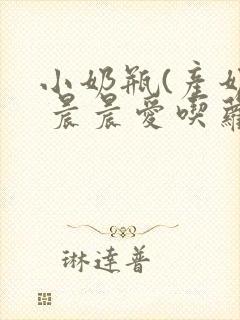 小奶瓶(產奶
晨晨愛喫蘿
琳達普